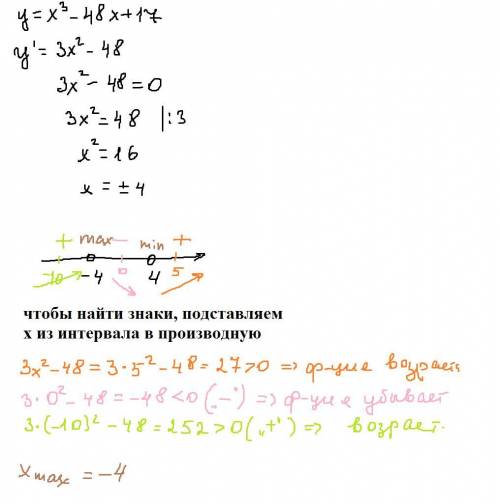 y = x³ - 48x + 17
y' = 3x² - 48
3x² - 48 = 0
3x² = 48 |:3
x² = 16
x = ± 4
+ max − min +
-10 -4 0 4 5
чтобы найти знаки, подставляем
х из интервала в производную
3x² - 48 = 3·5² - 48 = 27 > 0 => ф-ция возрает
3·0² - 48 = -48 < 0 („-") => ф-ция убывает
3·(-10)² - 48 = 252 > 0 („+") => возраст.
x max = -4